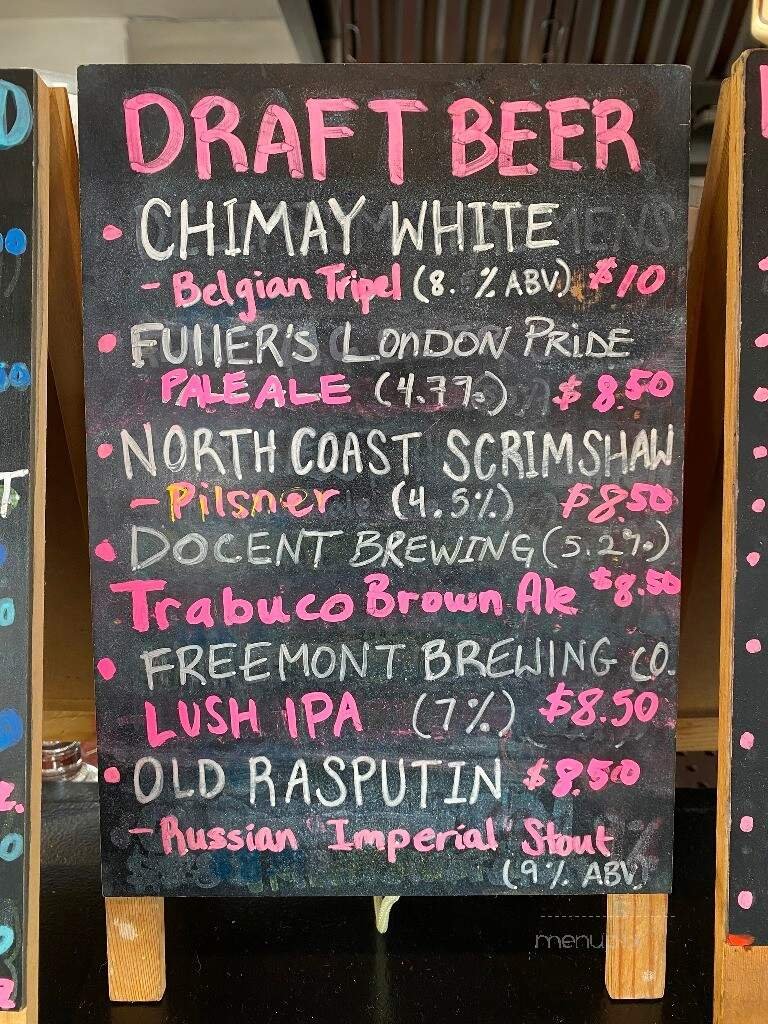 DRAFT BEER
• CHIMAY WHITE
- Belgian Tripel (8. % ABV) $10
• FUllER'S LONDON PRIDE
PALE ALE (4.7%) $8.50
• NORTH COAST SCRIMSHAW
- Pilsner (4.5%) $8.50
• DOCENT BREWING (5.2%)
Trabuco Brown Ale $8.50
• FREEMONT BREWING CO.
LUSH IPA (7%) $8.50
• OLD RASPUTIN $8.50
- Russian "Imperial" Stout
(9% ABV)